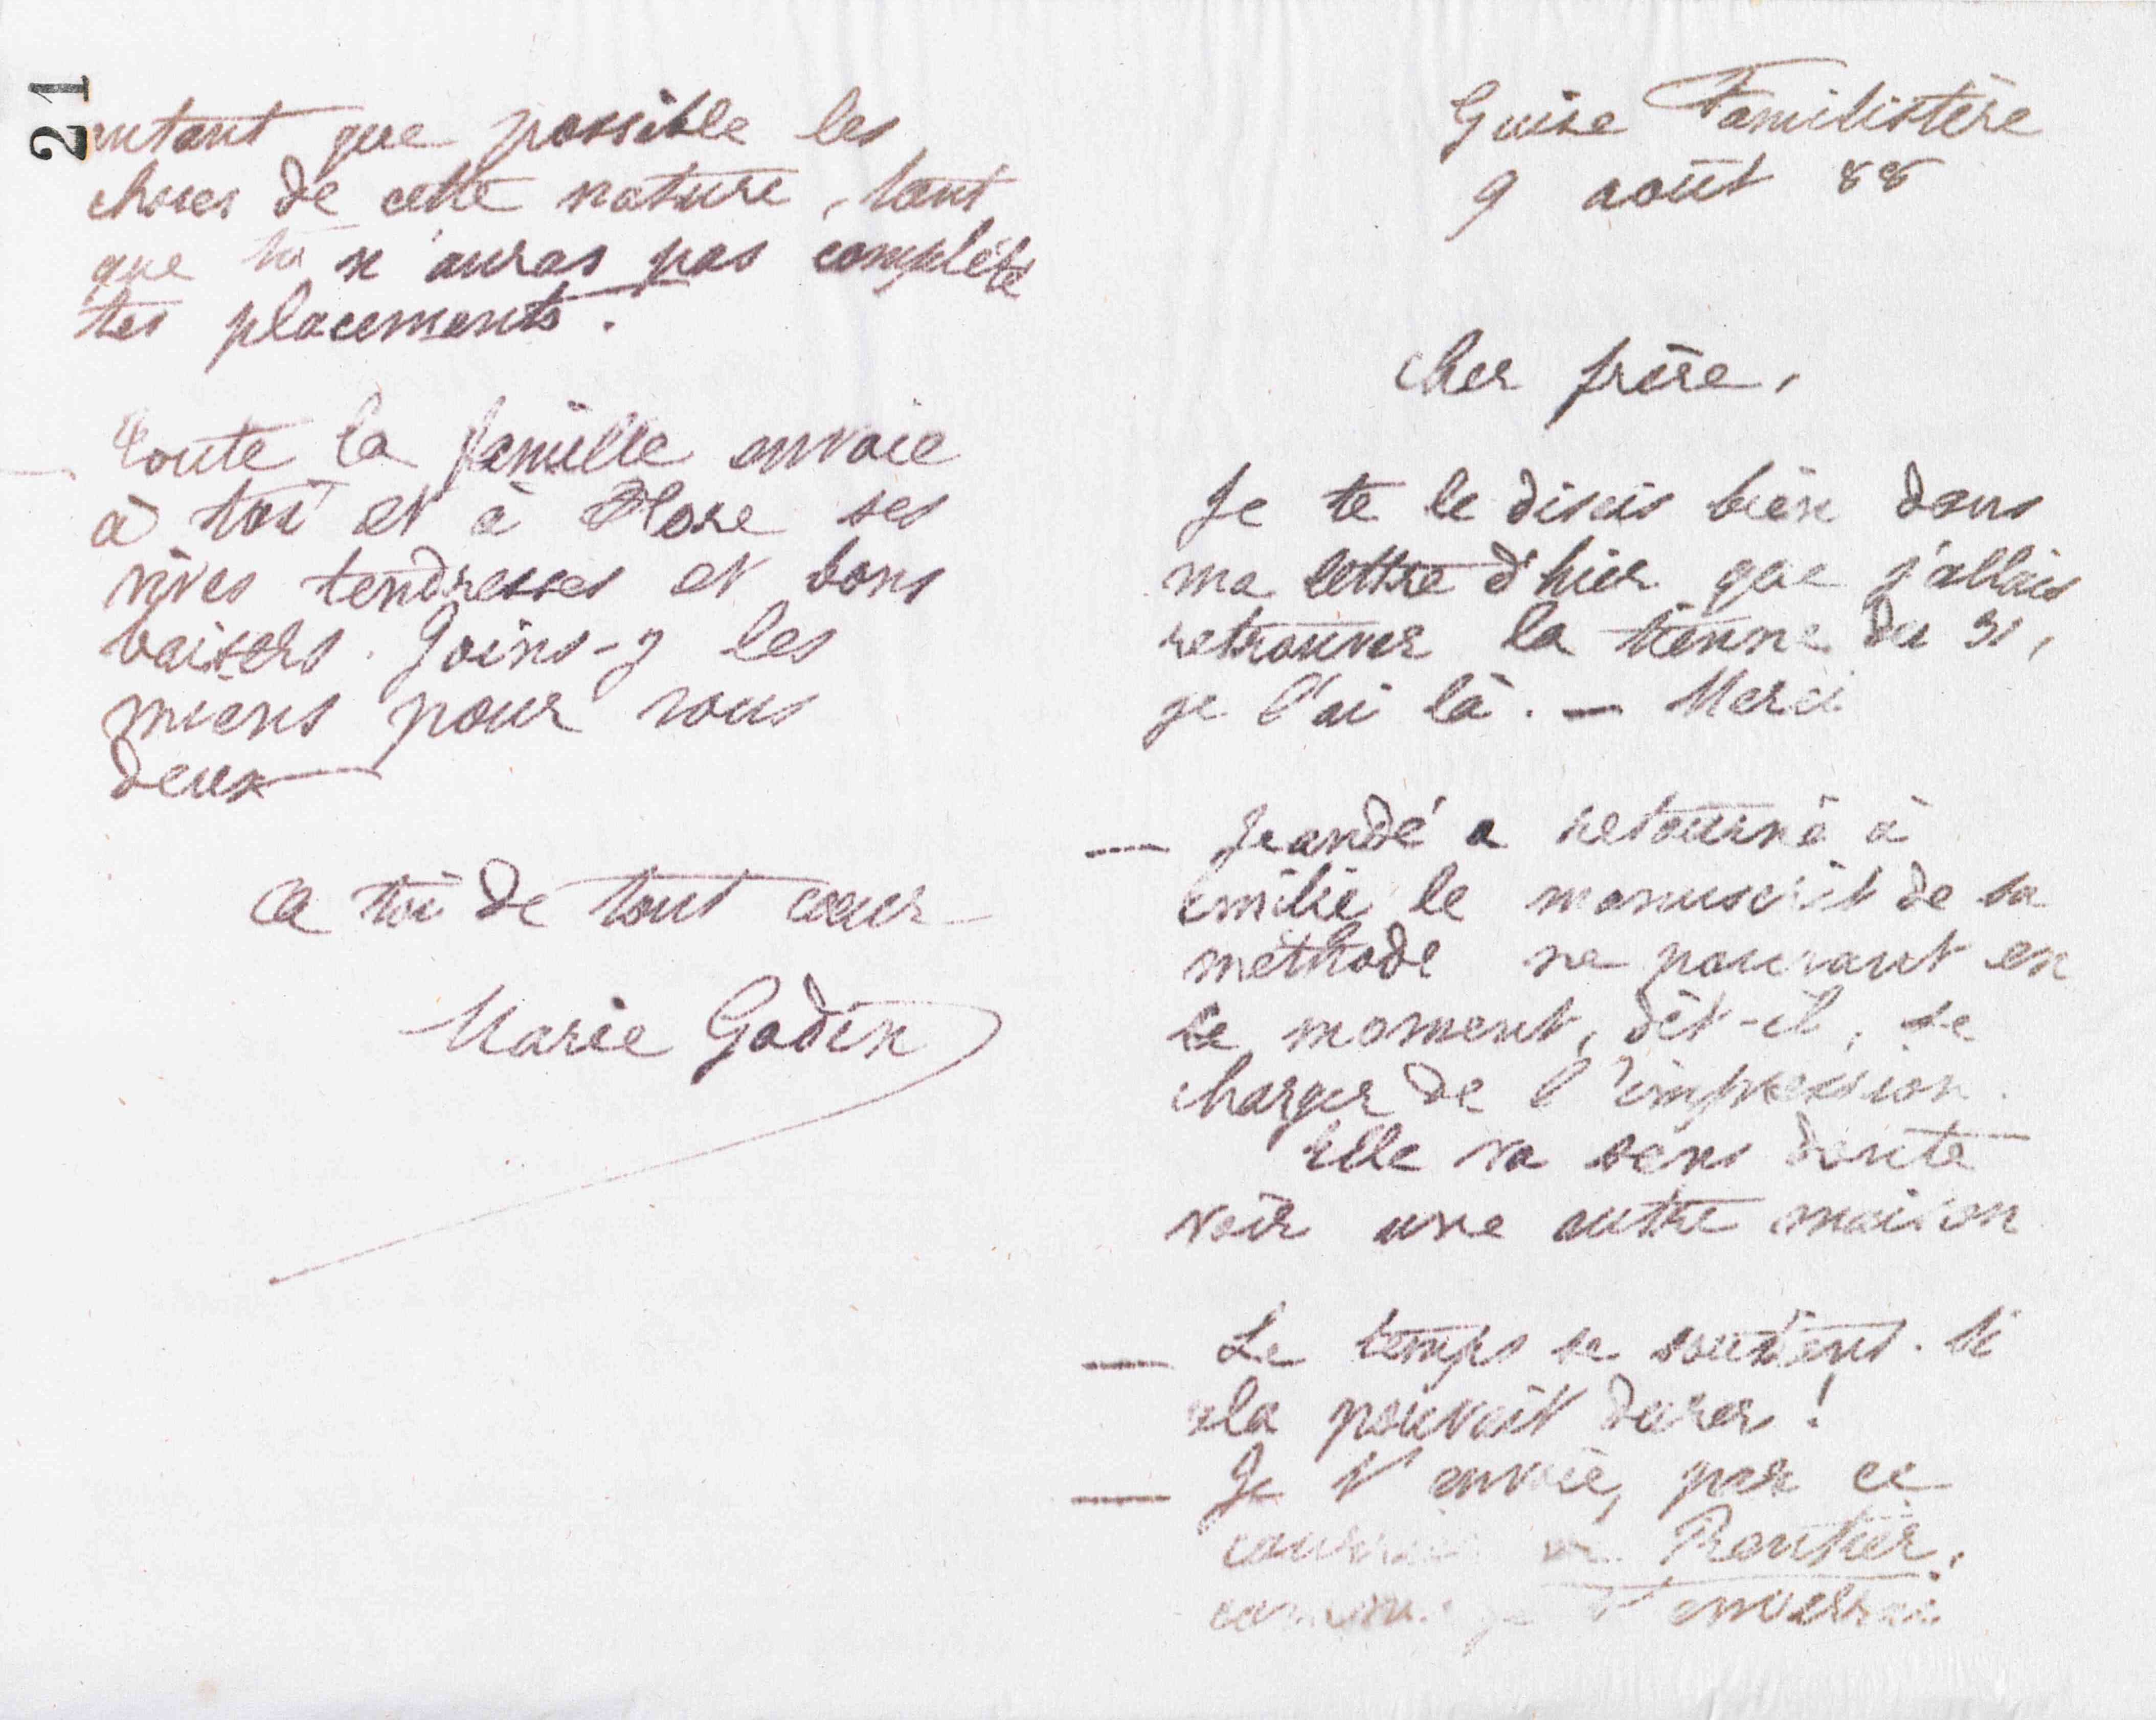 21
autant que possible les
choses de cette nature, tant
que tu n'auras pas complété
tes placements.
Toute la famille envoie
à toi et à Flore ses
vives tendresses et bons
baisers. Joins-y les
miens pour vous
deux
A toi de tout cœur
Marie Godin
Guise Familistère
9 août 88
Cher frère,
Je te le disais bien dans
ma lettre d'hier que j'allais
retrouver la tienne du 31,
je l'ai là. — Merci
— Jeandé a retourné à
Emilie le manuscrit de sa
méthode ne pouvant en
ce moment, dit-il, se
charger de l'impression.
Elle va sans doute
voir une autre maison
— Le temps se soutient. Si
cela pouvait durer !
— Je t'envoie, par ce
courrier Rentier,
comme je t'enverrai